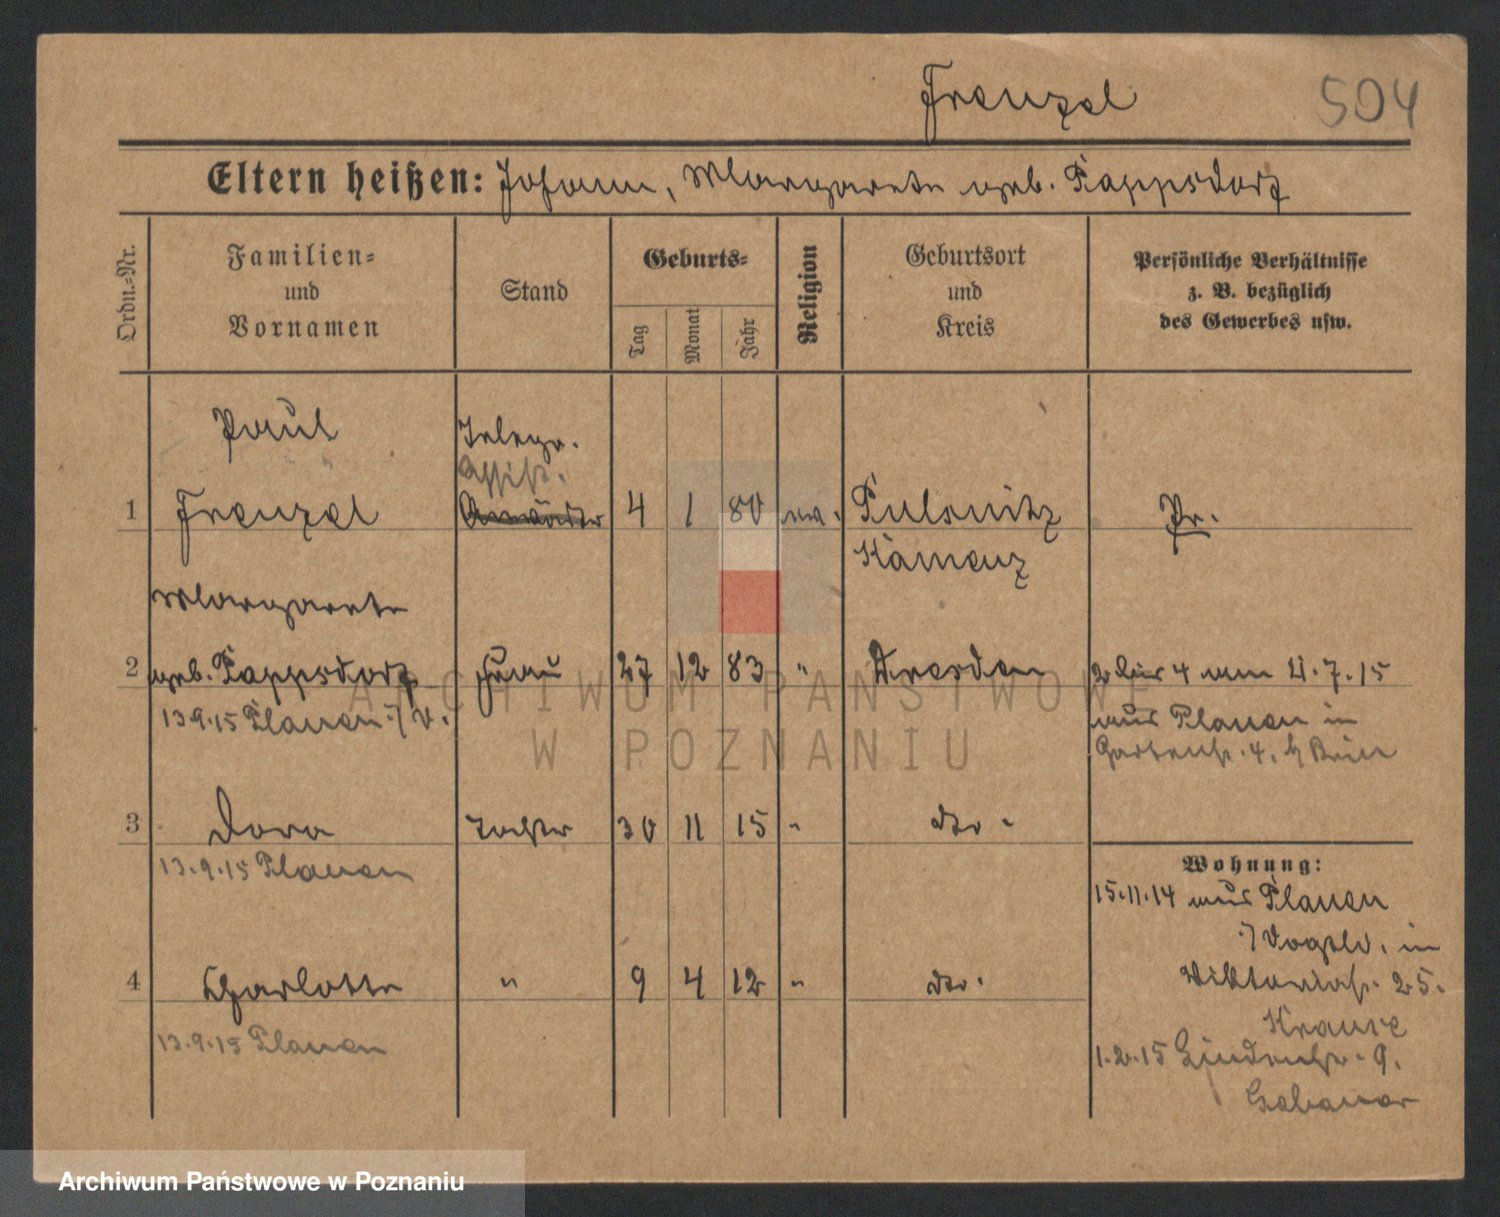 Frenzel
504
Eltern heißen: Johann, Margarete geb. Pappsdorf
Ordn.-Nr.
Familien- und Vornamen
Stand
Geburts-
Tag
Monat
Jahr
Religion
Geburtsort und Kreis
Persönliche Verhältnisse z. B. bezüglich des Gewerbes usw.
Paul
Telegr.
Assist.
1 Frenzel Anwärter 4 1 80 ev. Pulsnitz Pr.
Kamenz
Margarete
2 geb. Pappsdorf Frau 27 12 83 " Dresden 2 bis 4 am 4.7.15
13.9.15 Plauen i/V. aus Plauen in
Gartenstr. 4.
3 Dora Tochter 30 11 15 " dto.
13.9.15 Plauen
Wohnung:
15.11.14 aus Plauen
i/Vogtld. in
4 Charlotte " 9 4 12 " dto. Viktoriastr. 25.
13.9.15 Plauen Krause
1.2.15 Lindenstr. 9.
ARCHIWUM PAŃSTWOWE
W POZNANIU
Archiwum Państwowe w Poznaniu